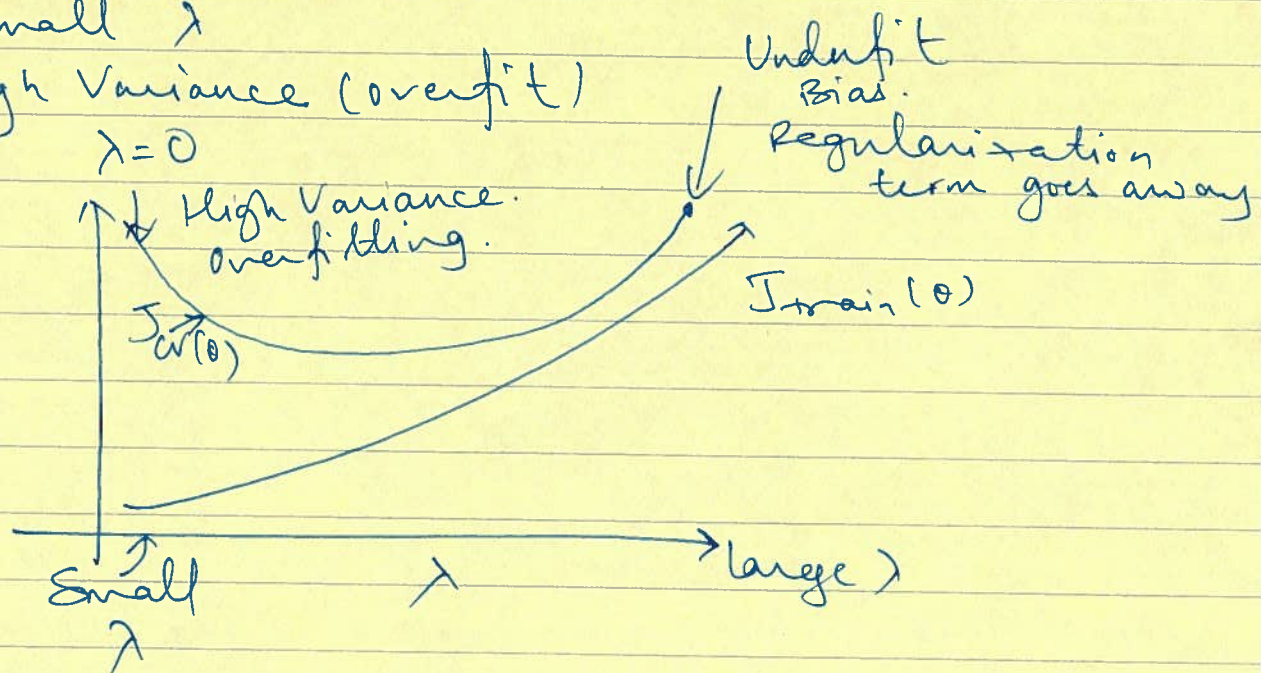 mall λ
gh Variance (overfit)
λ = 0
High Variance.
overfitting.
Underfit
Bias.
Regularization
term goes away
J cv(θ)
Jtrain (θ)
Small
λ
λ
large λ